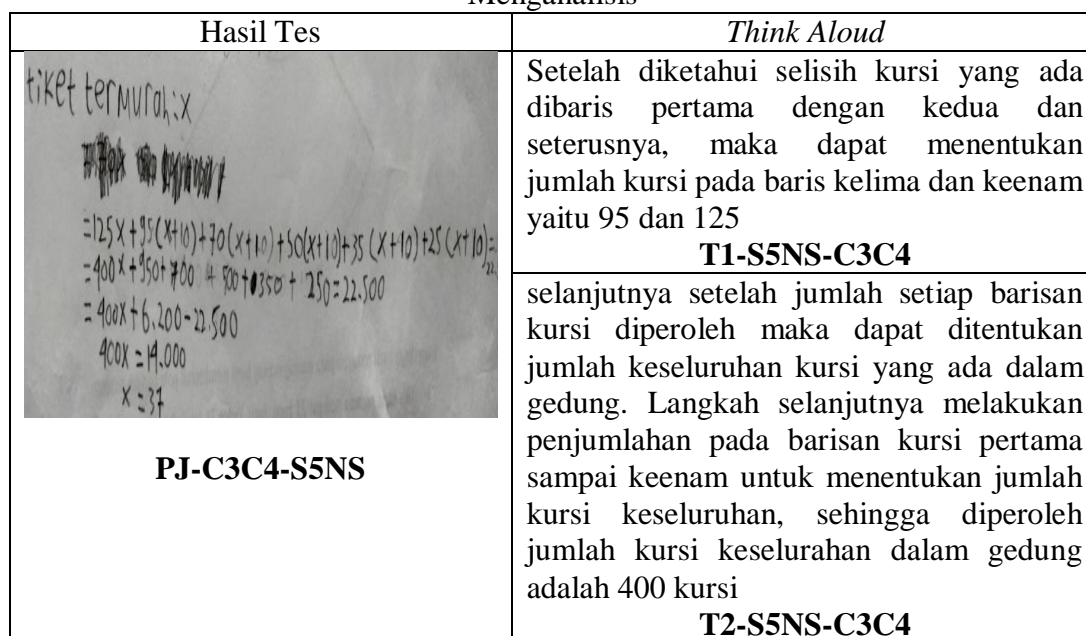 Menganalisis
Hasil Tes
tiket termurah: x
=125x+95(x+10)+70(x+10)+50(x+10)+35(x+10)+25(x+10)=
=400x+950+700+500+0350+250=22.500
=400x+6.200-22.500
400x=14.000
x=37
PJ-C3C4-S5NS
Think Aloud
Setelah diketahui selisih kursi yang ada
dibaris pertama dengan kedua dan
seterusnya, maka dapat menentukan
jumlah kursi pada baris kelima dan keenam
yaitu 95 dan 125
T1-S5NS-C3C4
selanjutnya setelah jumlah setiap barisan
kursi diperoleh maka dapat ditentukan
jumlah keseluruhan kursi yang ada dalam
gedung. Langkah selanjutnya melakukan
penjumlahan pada barisan kursi pertama
sampai keenam untuk menentukan jumlah
kursi keseluruhan, sehingga diperoleh
jumlah kursi keselurahan dalam gedung
adalah 400 kursi
T2-S5NS-C3C4